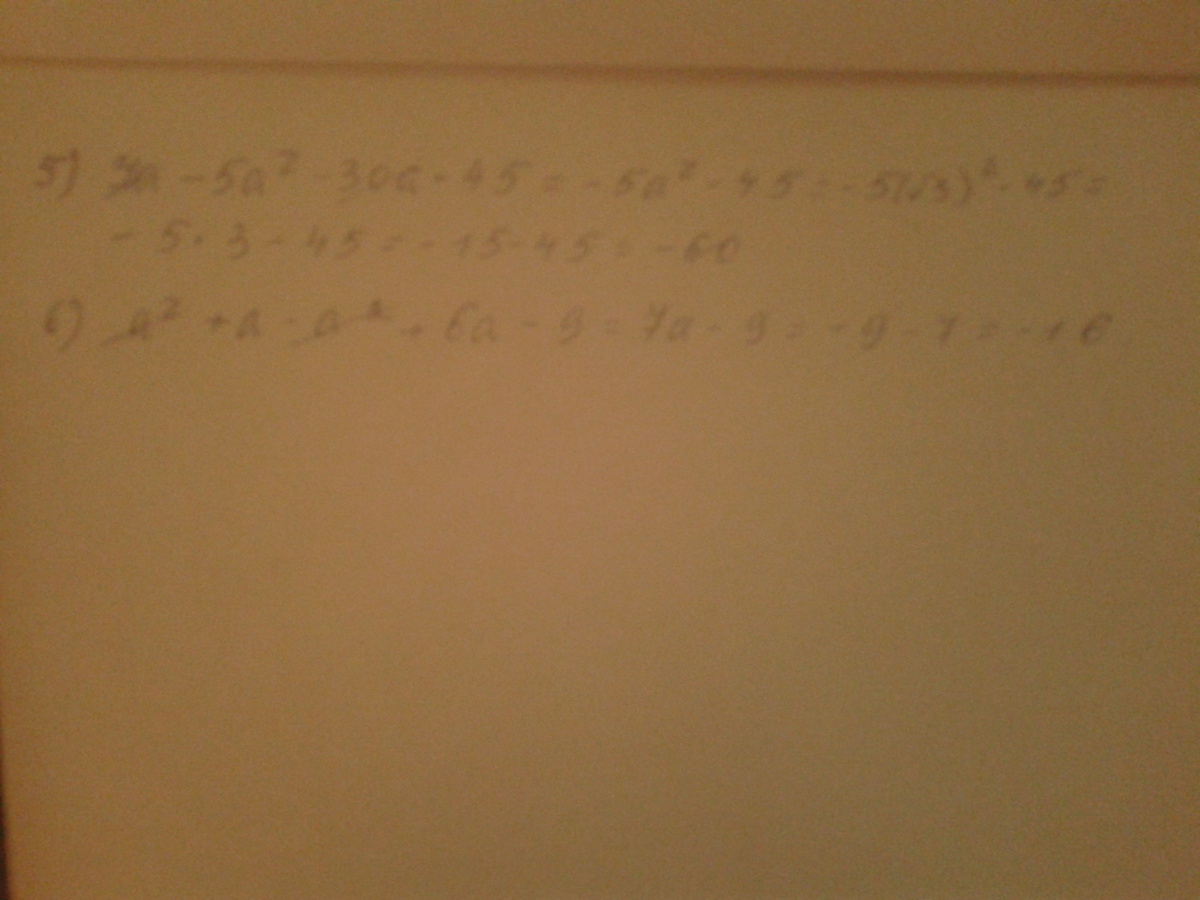 5) 3a - 5a² - 30a - 45 = -5a² - 45 = -5(√3)² - 45 =
- 5 · 3 - 45 = -15 - 45 = -60
6) a² + a - a² + 6a - 9 = 7a - 9 = -9 - 7 = -16